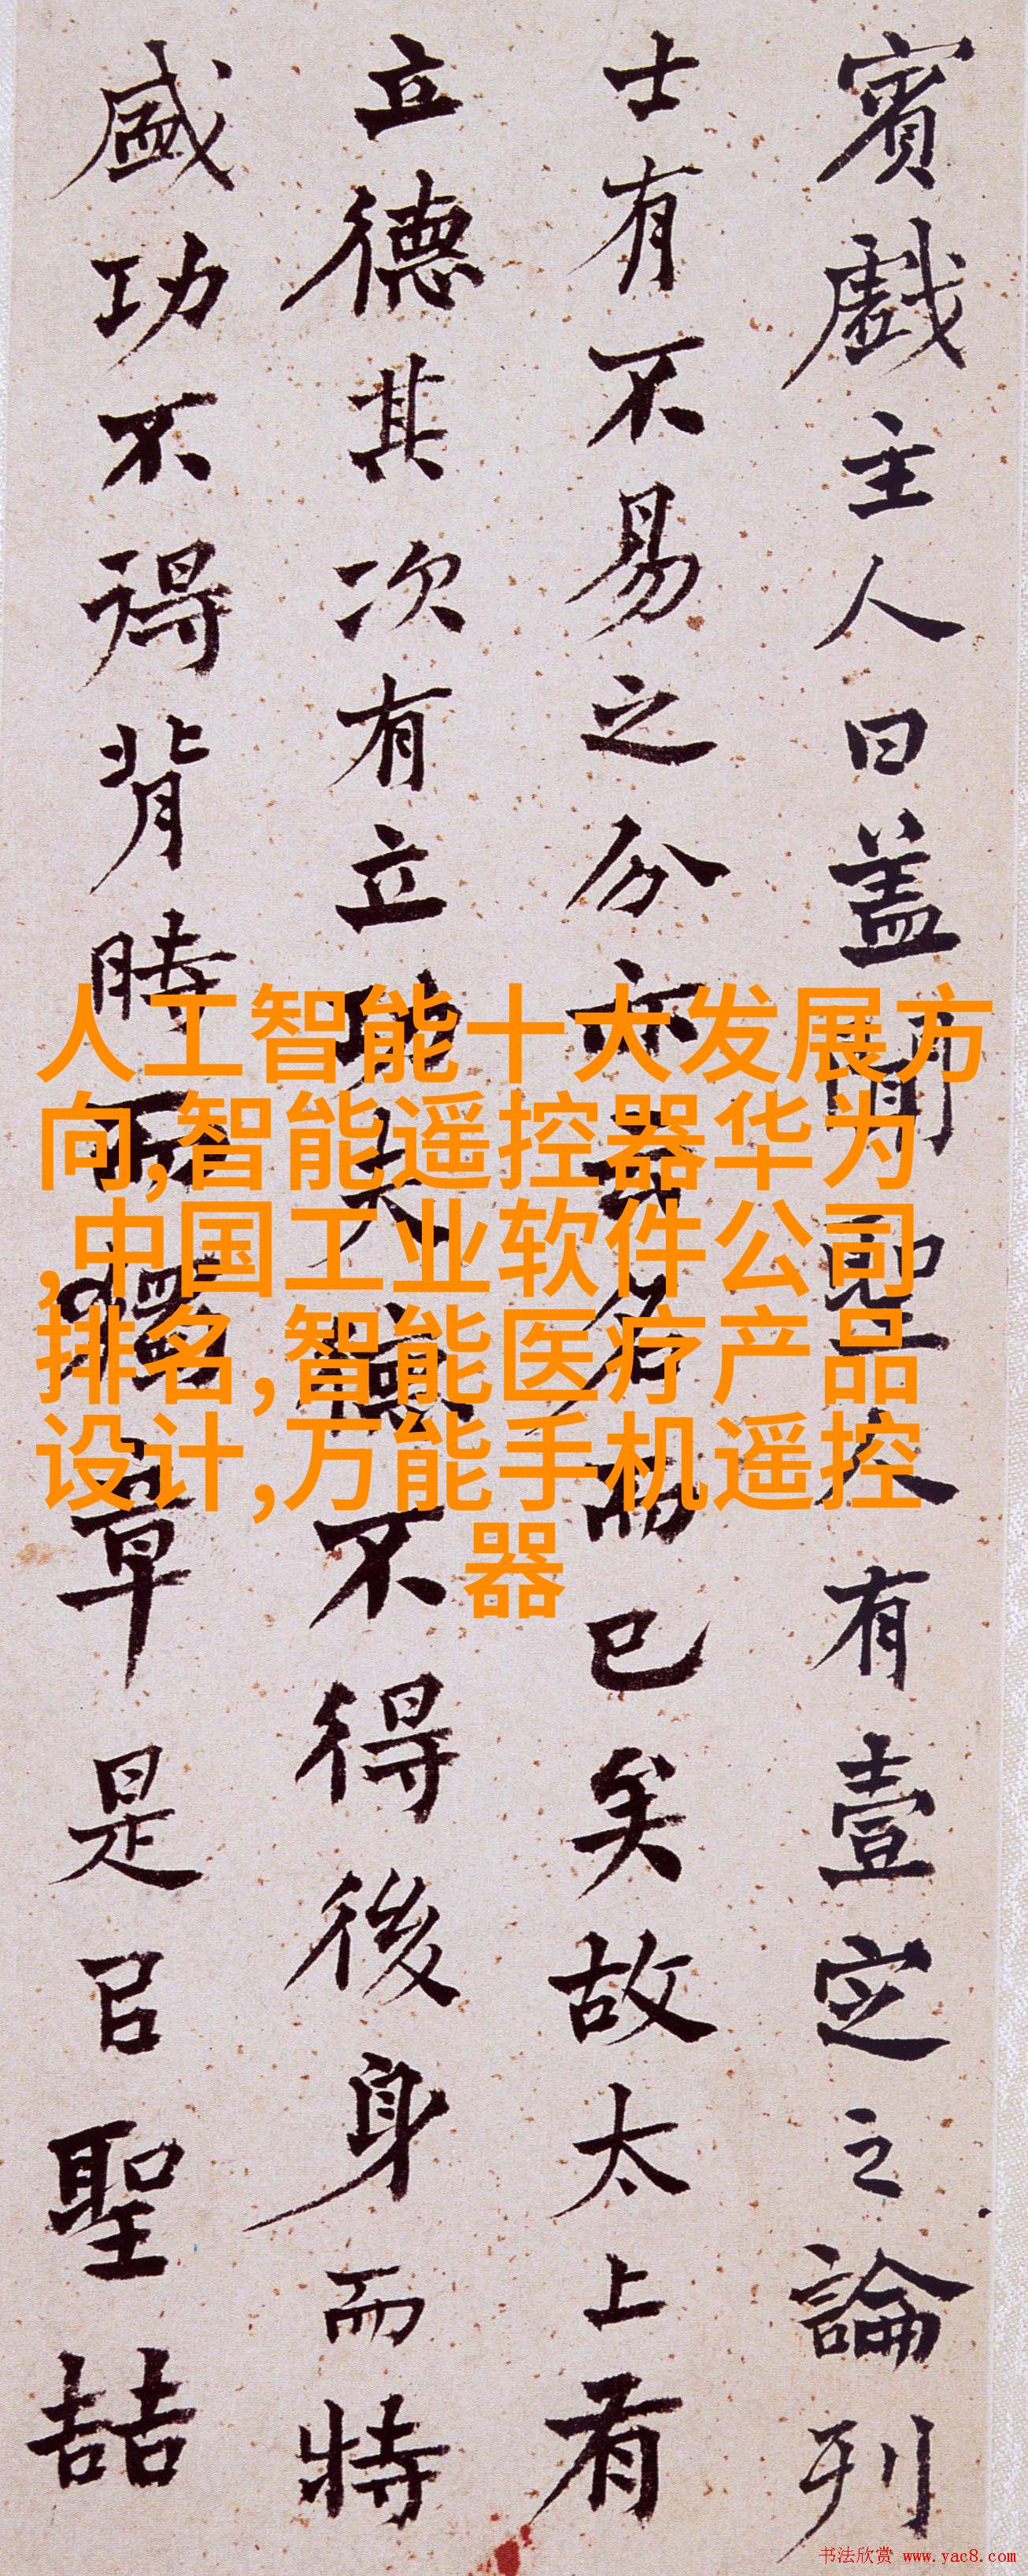 賓戲主人曰盖聞聖人有壹定之論列
士有不易之分亦云名而已矣故太上有
立德其次有立功夫德不得後身而特
盛功不得背時而獨章是以聖喆
人工智能十大发展方
向,智能遥控器华为
,中国工业软件公司
排名,智能医疗产品
设计,万能手机遥控
器
书法欣赏 www.yac8.com